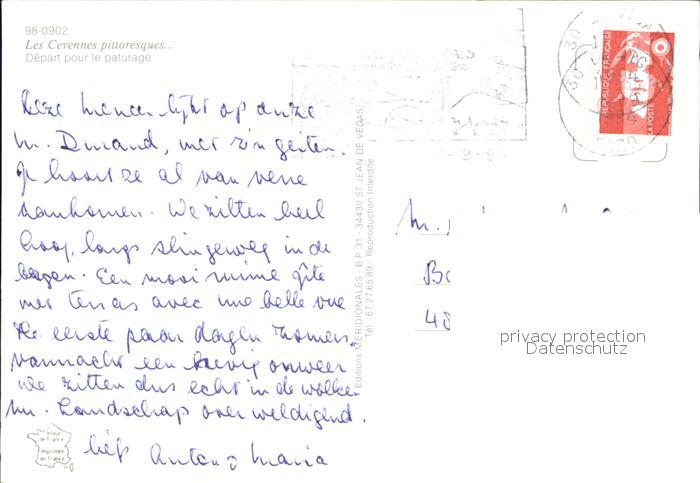 98-0902
Les Cevennes pittoresques...
Départ pour le paturage
Deze meneer lijkt op onze
M. Durand, met z'n geiten.
Je hoort ze al van verre
aankomen. We zitten heel
hoog, langs slingerweg in de
bergen. Een mooi ruime gîte
met terras avec une belle vue
De eerste paar dagen zomers,
vannacht een hevig onweer
we zitten dus echt in de wolken
nu. Landschap overweldigend.
liefs Anton & Maria
Editions MERIDIONALES - B.P. 31 - 34430 ST JEAN DE VEDAS
Tél. 67.27.65.89 - Reproduction Interdite
REPUBLIQUE FRANÇAISE
LA POSTE
30
30
GARD
M.
48
privacy protection
Datenschutz
Image de France
Imprimée en France